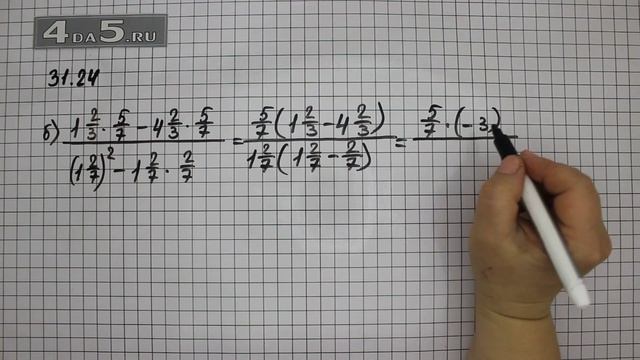 4DA5.RU
31.24
б) (1 2/3 · 5/7 − 4 2/3 · 5/7) / ((1 2/7)² − 1 2/7 · 2/7) = 5/7 (1 2/3 − 4 2/3) / 1 2/7 (1 2/7 − 2/7) = 5/7 · (−3)